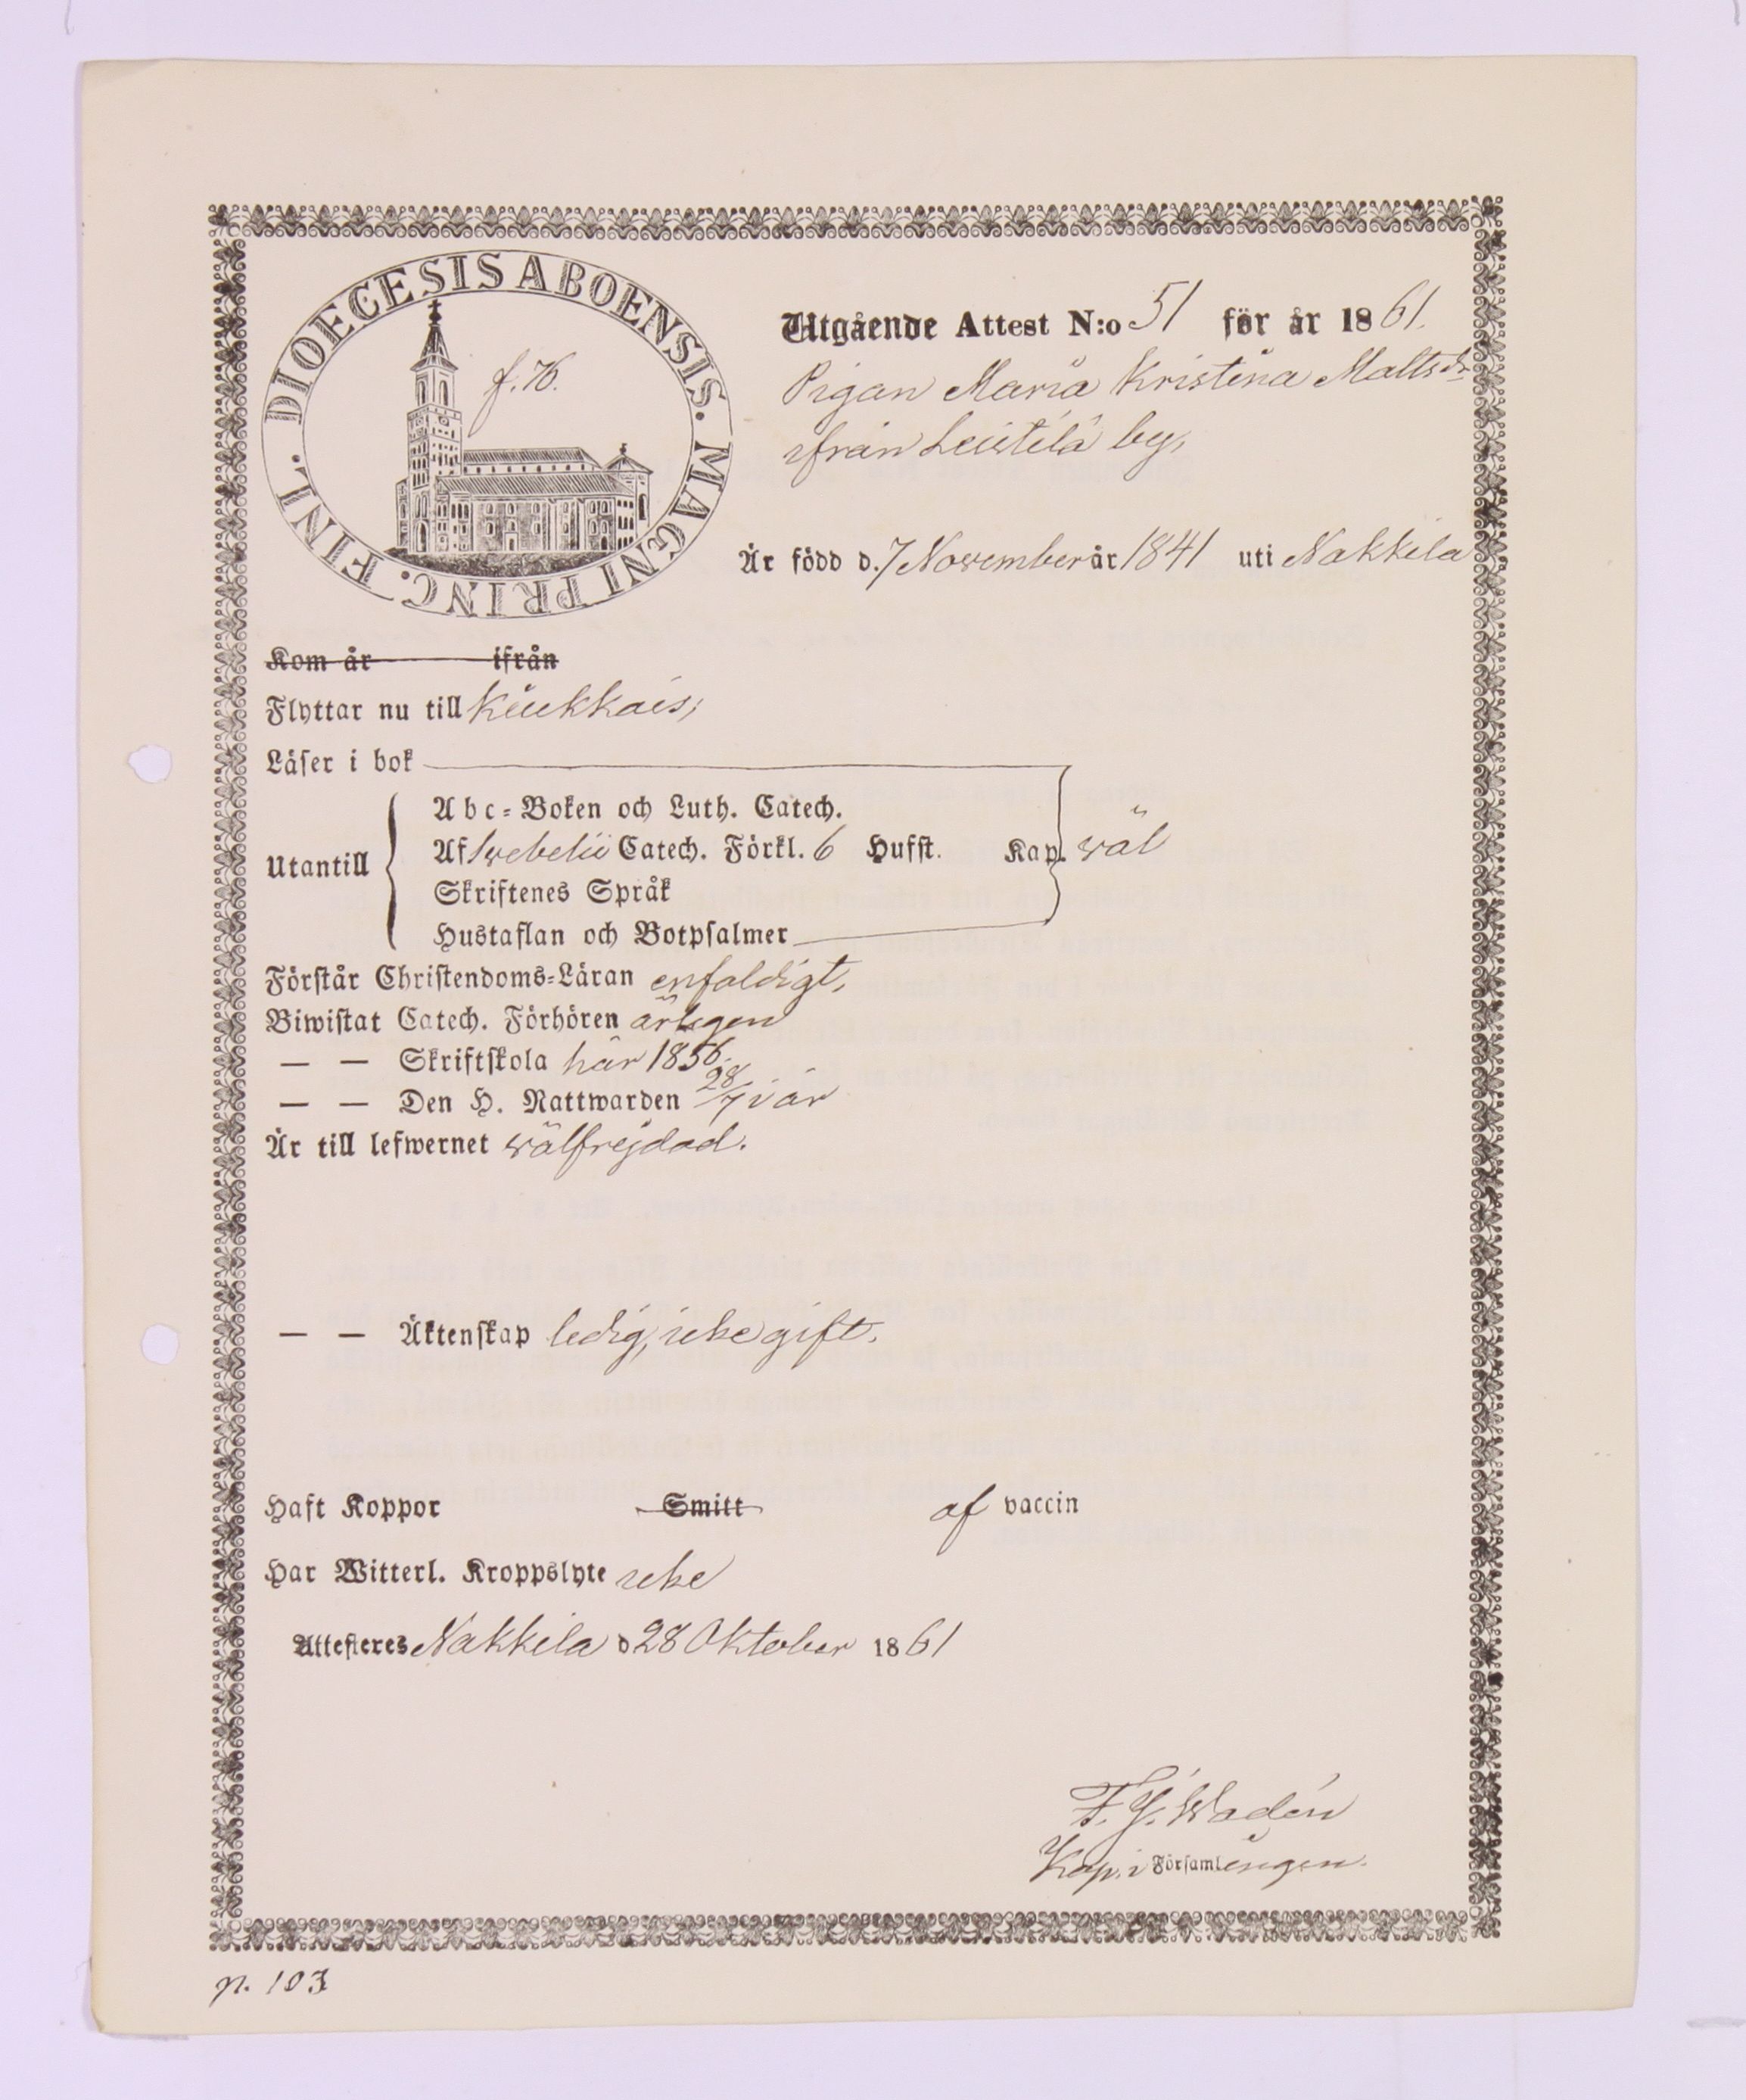 DIOECESIS ABOENSIS. MAGNI PRINC. FINL.
f. 76.
Utgående Attest N:o 51 för år 1861.
Pigan Maria Kristina Mattsdr
ifrån Leistilä by,
Är född d. 7 November år 1841 uti Nakkila
Kom år ifrån
Flyttar nu till Kiukkais,
Läser i bok
Utantill
Abc-Boken och Luth. Catech.
Af Svebelii Catech. Förkl. 6 Hufst. Kap. wäl
Skriftenes Språk
Hustaflan och Botpsalmer
Förstår Christendoms-Läran enfaldigt,
Biwistat Catech. Förhören ärligen
— — Skriftskola här 1856.
— — Den H. Nattwarden 28/7 i år
Är till lefwernet wälfrejdad.
— — Äktenskap ledig, icke gift.
Haft Koppor Smitt af vaccin
Har Witterl. Kroppslyte icke
Attesteres Nakkila d 28 Oktober 1861
F. G. Wadén
Kap. i Församlingen.
p. 103